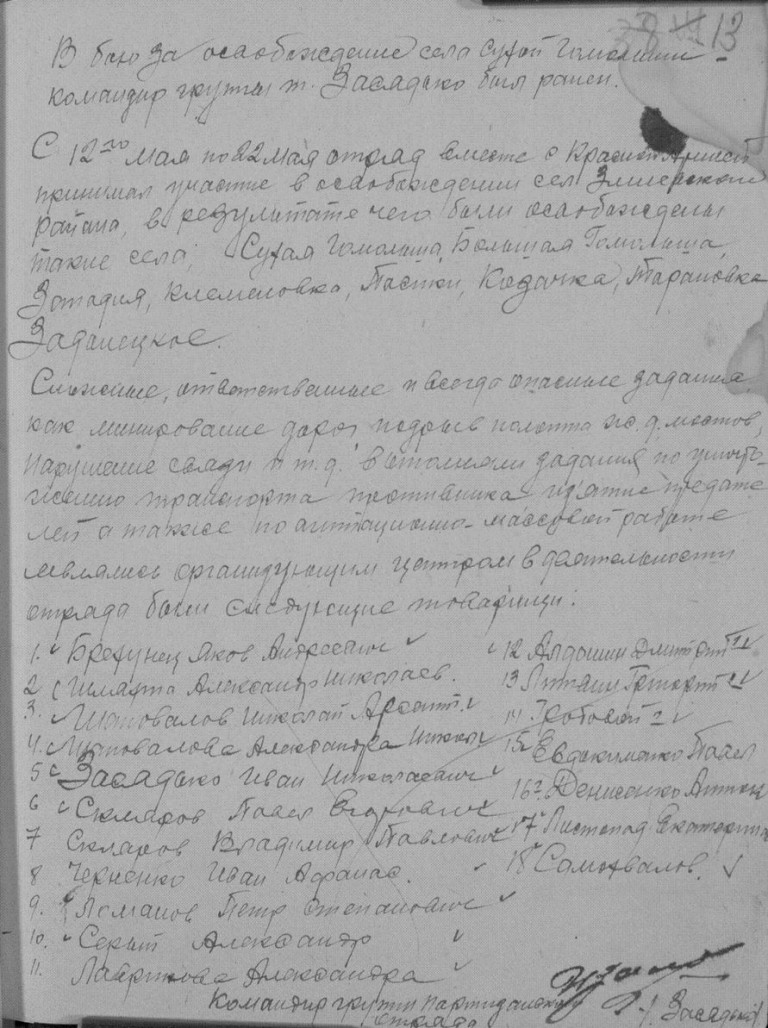 13
В бою за освобождение села Сухой Гомольши -
командир группы т. Засядько был ранен.
С 12го мая по 22 мая отряд вместе с Красной Армией
принимал участие в освобождении сел Змиевского
района, в результате чего были освобождены
такие села: Сухая Гомольша, Большая Гомольша,
Клеменовка, Пастки, Тарановка
Задонецкое.
Сложные, ответственные и всегда опасные задания
как минирование дорог подрыв полотна ж.д. мостов,
нарушение связи и т.д. выполняли задания по уничто-
жению транспорта противника из'ятие предате
лей а также по агитационно-массовой работе
являлись организующим центром в деятельности
отряда были следующие товарищи:
1. Брехунец Яков Андреевич
2. Шмагла Александр Николаев.
3. Шаповалов Николай Арсент.
4. Шаповалова Александра Никол
5 Засядько Иван Николаевич
6 Скляров Павел Егорович
7 Скляров Владимир Павлович
8 Черненко Иван Афанас.
9. Ломанов Петр Степанович
10. Серый Александр
11. Александра
12 Алдошин Дмитрий
13 Григорий
14
15 Евдокименко Павел
16 Денисенко Антон
17 Листопад Екатерина
18 Самохвалов.
Командир группы партизанского
отряда
/Засядько/